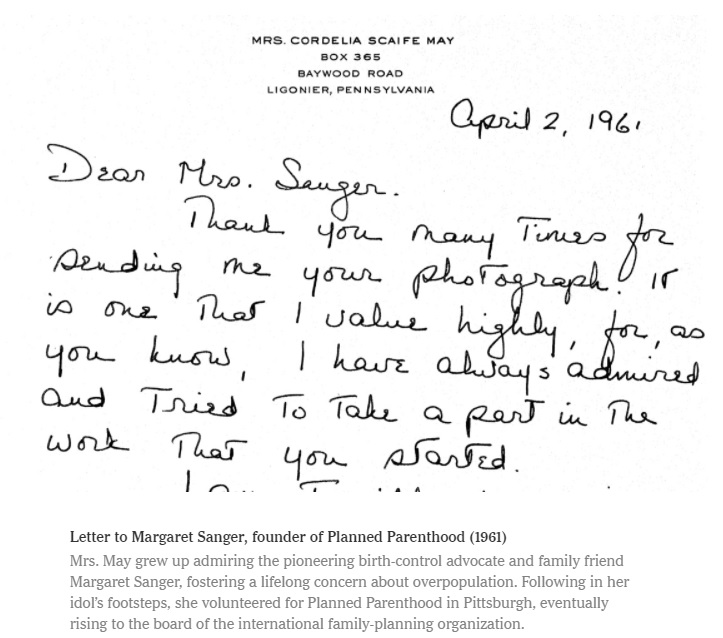 MRS. CORDELIA SCAIFE MAY
BOX 365
BAYWOOD ROAD
LIGONIER, PENNSYLVANIA
April 2, 1961
Dear Mrs. Sanger.
Thank you many Times for
sending me your photograph. It
is one That I value highly, for, as
you know, I have always admired
and Tried To Take a part in The
work That you started.
Letter to Margaret Sanger, founder of Planned Parenthood (1961)
Mrs. May grew up admiring the pioneering birth-control advocate and family friend
Margaret Sanger, fostering a lifelong concern about overpopulation. Following in her
idol’s footsteps, she volunteered for Planned Parenthood in Pittsburgh, eventually
rising to the board of the international family-planning organization.